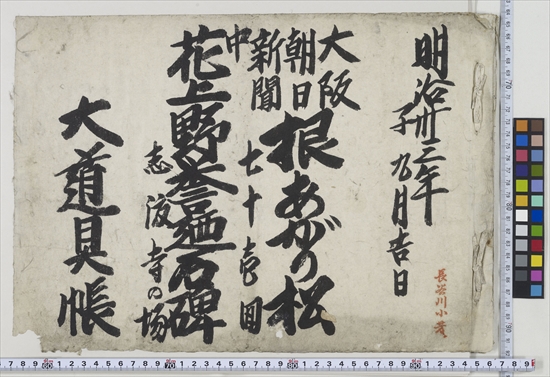 明治卅三年
子九月吉日
大阪
朝日
新聞
根あがり松
七十壱回
中
花上野誉迺石碑
志渡寺の場
大道具帳
長谷川小